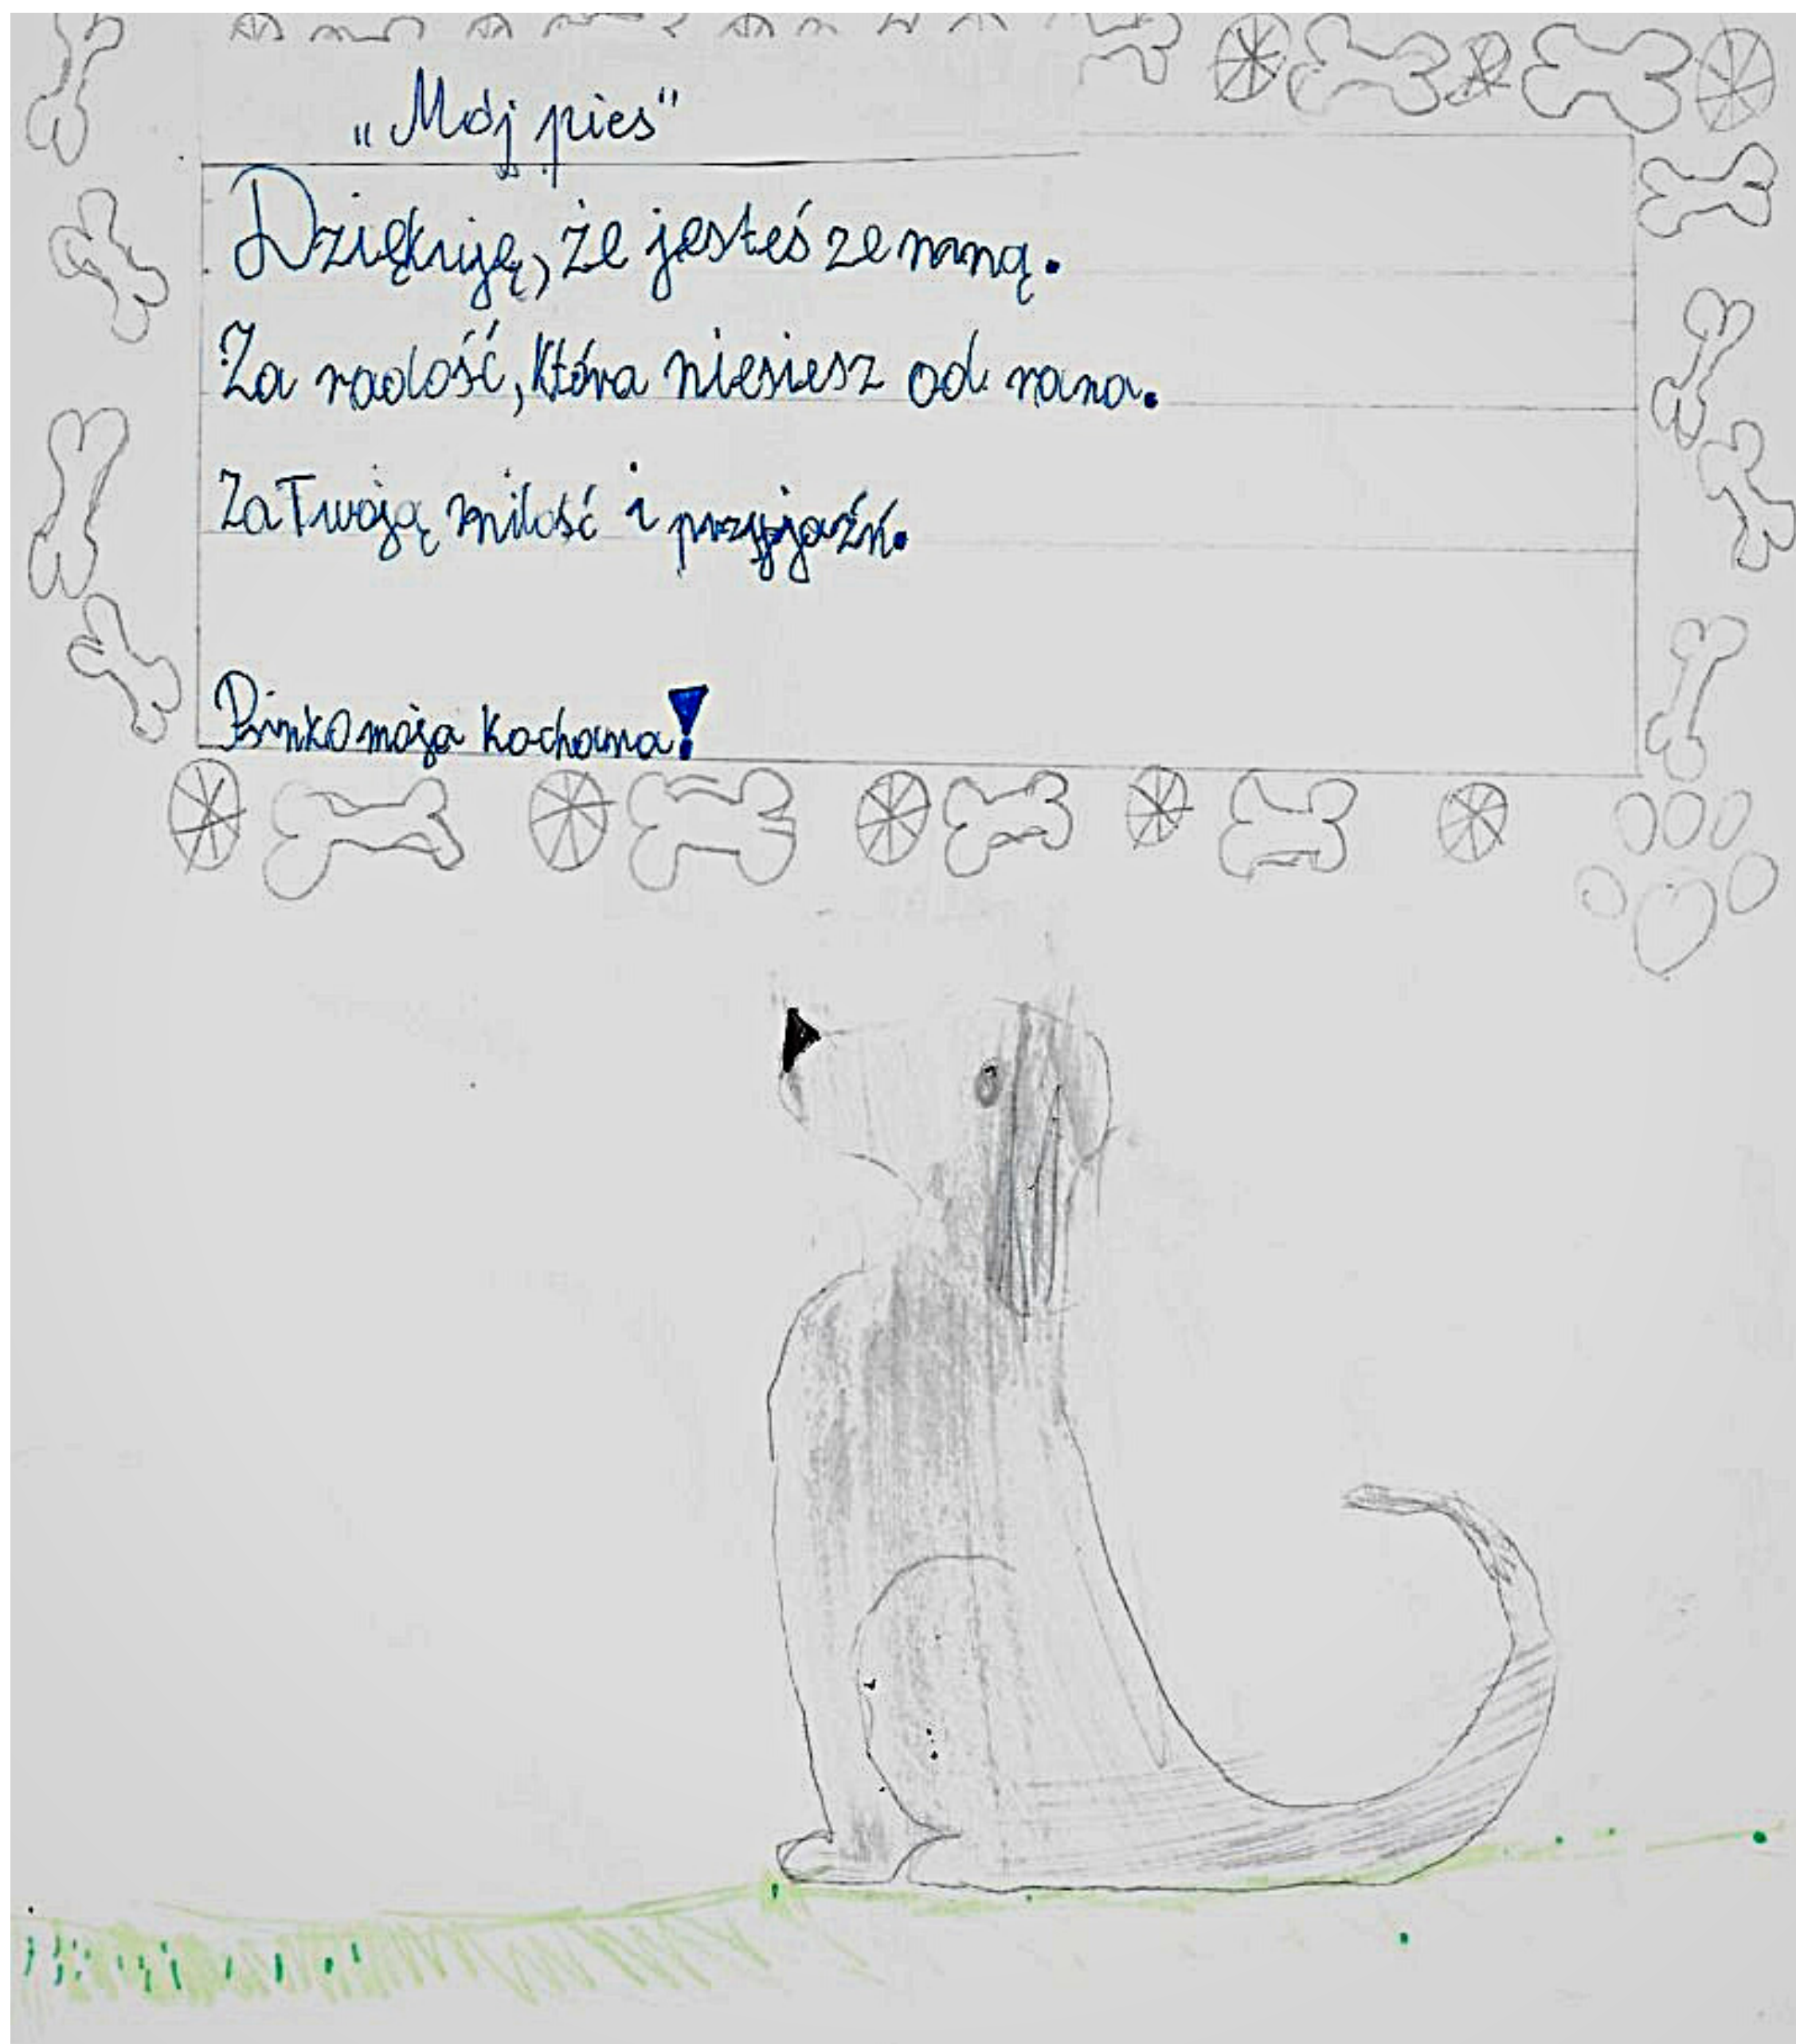 „Mój pies"
Dziękuję, że jesteś ze mną.
Za radość, która niesiesz od rana.
Za Twoją miłość i przyjaźń.
Binko moja kochana!